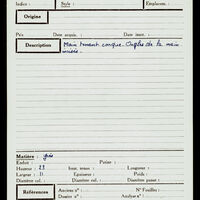 Indice : Style : Emplacem. :
Origine
Prix Date acquis. : Date insert. :
Description Main tenant conque. Ongles de la main
incisés.
Matière : gris
Enduit : Patine :
Hauteur : Haut. tenon : Longueur :
Largeur : Epaisseur : Poids :
Diamètre col. : Diamètre panse :
Références Ancien n° : N° Feuilles :
Dossier n° : Analyse :